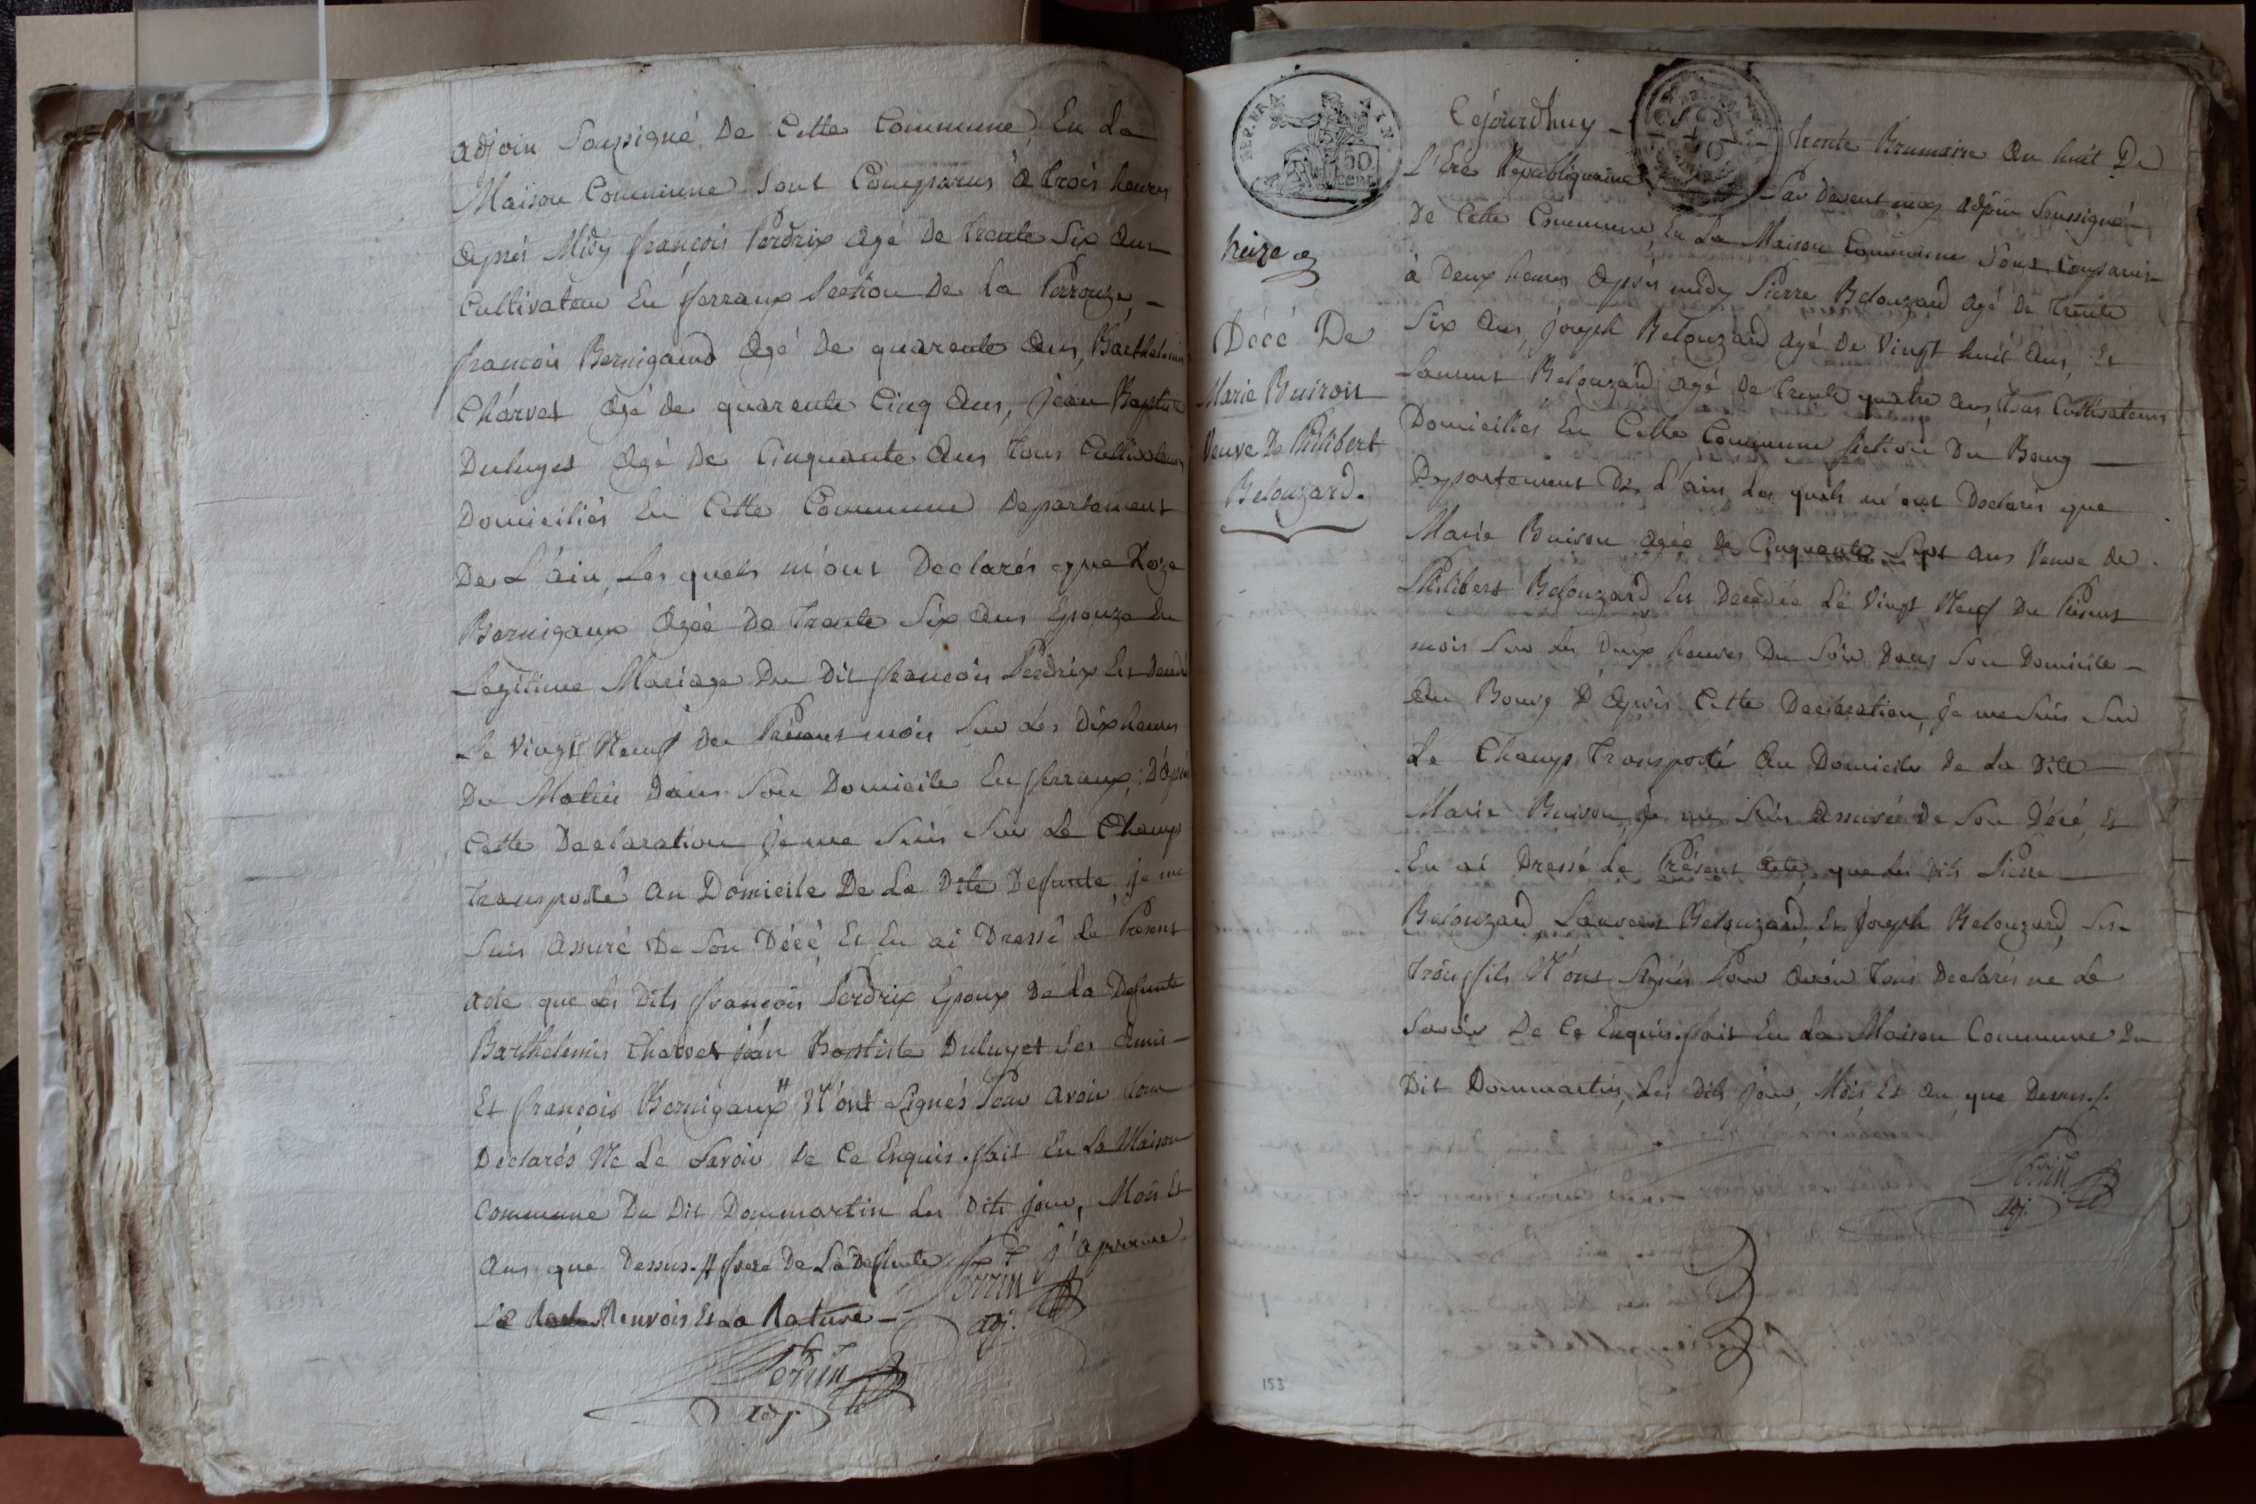 adjoin Soussigné De Cette Commune En La
Maison Commune Sont Comparus à trois heures
après Midy françois Perdrix agé De trente Six ans
Cultivateur En ferraux Section De La Perrouze
francois Bernigaud agé De quarante ans, Barthelemi
Charvet agé de quarante Cinq ans, jean Baptiste
Duluyet agé De Cinquante ans tous Cultivateurs
Domiciliés En Cette Commune Departement
De L'ain, Les quels m'ont Declarés que Roze
Bernigaux agée De trente Six ans Epouze En
Legitime Mariage Du Dit francois Perdrix Est Decedé
Le Vingt Neuf Du Présent mois Sur Les dix heures
Du Matin Dans Son Domicile En ferraux, D'après
Cette Declaration je me Suis Sur Le Champ
transposté au Domicile De La Dite Defunte, je me
Suis assuré De Son Décé, Et En ai Dressé Le Présent
acte que Les Dits françois Perdrix Epoux De La Defunte
Barthelemis Charvet jean Baptiste Duluyet Ses amis
Et françois Bernigaux # N'ont Signés Pour avoir tous
Déclarés Ne Le Savoir De Ce Enquis. fait En La Maison
Commune Du Dit Dommartin Les Dits jour, Mois Et
ans que Dessus. # frere De La Defunte j'aprouve
Le Renvois Et La Rature
Perrin
adj.
Perrin
adj.
REP. FRA.
50
Cejourdhuy trente Brumaire an huit De
L'Ere Republiquaine Par Devent moy adjoin Soussigné
De Cette Commune, En La Maison Commune Sont Comparus
à Deux heures après midy Pierre Belouzard agé De trente
Six ans, joseph Belouzard agé De Vingt huit ans, Et
Laurent Belouzard agé De trente quatre ans, tous Cultivateurs
Domiciliés En Cette Commune Section Du Bourg
Departement De L'ain, Les quels m'ont Declarés que
Marie Buiron agée de Cinquante Sept ans Veuve de
Philibert Belouzard Est Decedée Le Vingt Neuf Du Présent
mois Sur Les Deux heures Du Soir Dans Son Domicile
au Bourg D'après Cette Declaration, je me Suis Sur
Le Champ transposté au Domicile De La Dite
Marie Buiron, je me Suis assuré De Son Décé, Et
En ai Dressé Le Présent acte, que Les Dits Pierre
Belouzard, Laurent Belouzard, Et joseph Belouzard, Ses
trois fils N'ont Signés Pour avoir tous Declarés ne Le
Savoir De Ce Enquis. fait En La Maison Commune Du
Dit Dommartin, Les Dits jour, Mois, Et an, que Dessus.
Perrin
adj.
treize
Décé De
Marie Buiron
Veuve De Philibert
Belouzard.
153